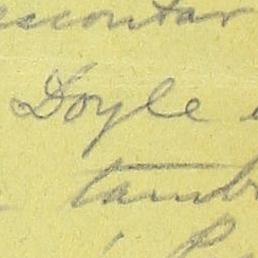 escontar
Doyle e
tamb